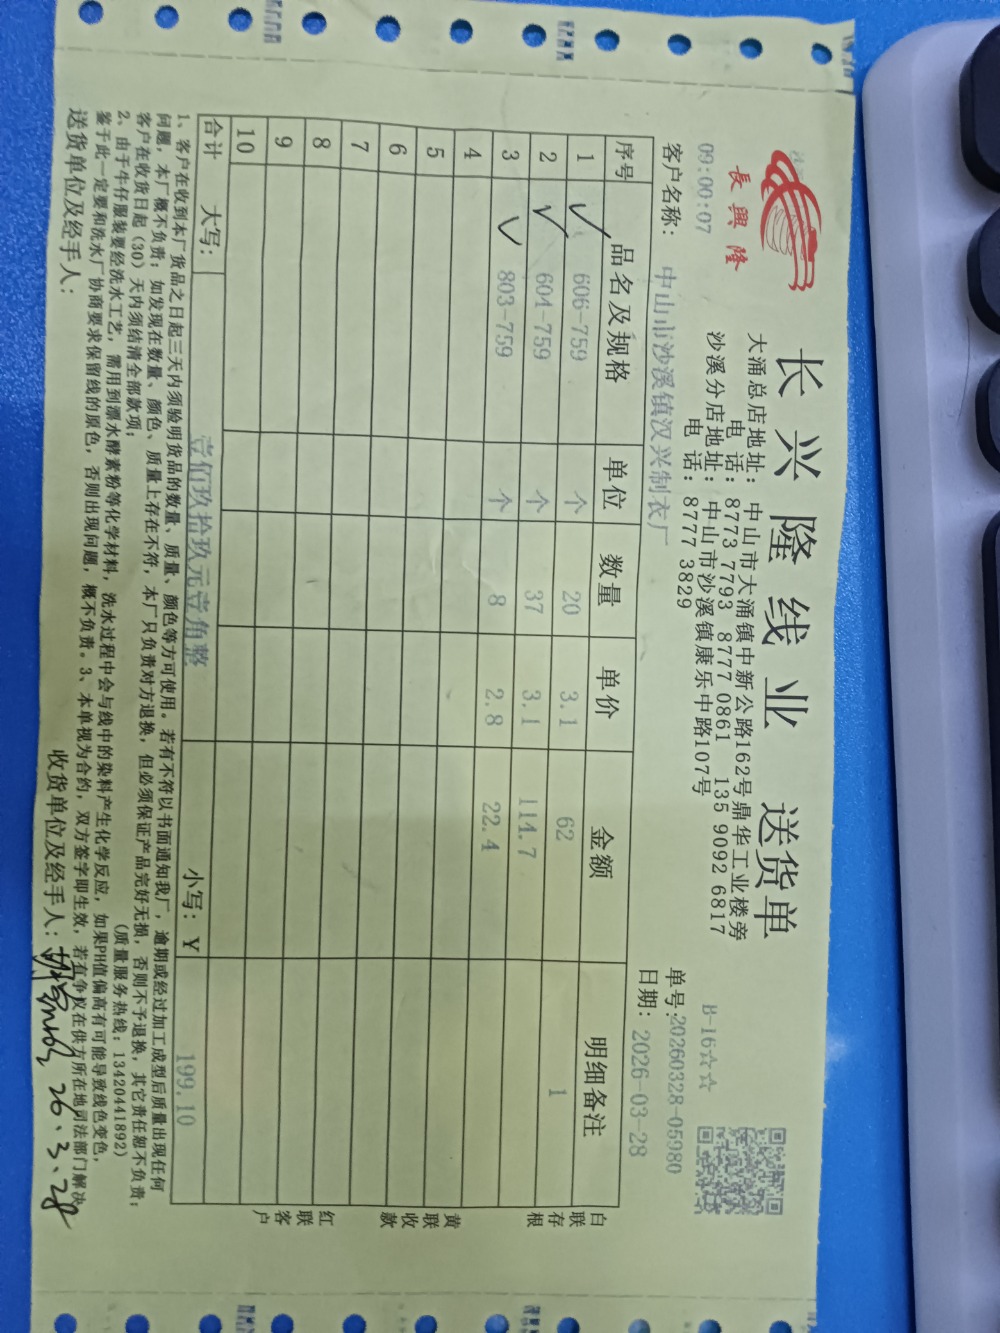 長興隆
长兴隆线业 送货单
大涌总店地址：中山市大涌镇中新公路162号鼎华工业楼旁
电 话：8773 7793 8777 0861 135 9092 6817
沙溪分店地址：中山市沙溪镇康乐中路107号
电 话：8777 3829
B-16☆☆
09:00:07
单号:20260328-05980
客户名称：中山市沙溪镇汉兴制衣厂
日期：2026-03-28
序号 品名及规格 单位 数量 单价 金额 明细备注
1 606-759 个 20 3.1 62 1
2 604-759 个 37 3.1 114.7
3 803-759 个 8 2.8 22.4
4
5
6
7
8
9
10
合计 大写：壹佰玖拾玖元壹角整 小写：¥ 199.10
白联存根
黄联收款
红联客户
1、客户在收到本厂货品之日起三天内须验明货品的数量、质量、颜色等方可使用。若有不符以书面通知我厂，逾期或经过加工成型后质量出现任何
问题，本厂概不负责；如发现在数量、颜色、质量上存在不符，本厂只负责对方退换，但必须保证产品完好无损，否则不予退换，其它责任恕不负责；
客户在收货日起（30）天内须结清全部款项；
（质量服务热线：13420441892）
2、由于牛仔服装要经洗水工艺，需用到漂水酵素粉等化学材料，洗水过程中会与线中的染料产生化学反应，如果PH值偏高有可能导致线色变色，
鉴于此一定要和洗水厂协商要求保留线的原色，否则出现问题，概不负责。3、本单视为合约，双方签字即生效，若有争议在供方所在地司法部门解决
送货单位及经手人：
收货单位及经手人： 26.3.28